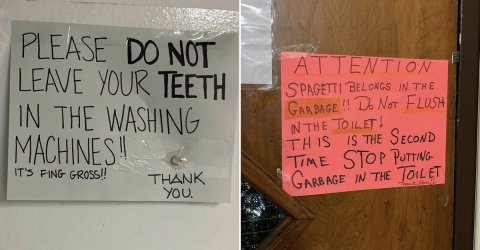 PLEASE DO NOT
LEAVE YOUR TEETH
IN THE WASHING
MACHINES!!
IT'S FING GROSS!!
THANK
YOU.
ATTENTION
SPAGETTI BELONGS IN THE
GARBAGE!! DO NOT FLUSH
IN THE TOILET!
THIS IS THE SECOND
TIME STOP PUTTING
GARBAGE IN THE TOILET
THANK YOU!!